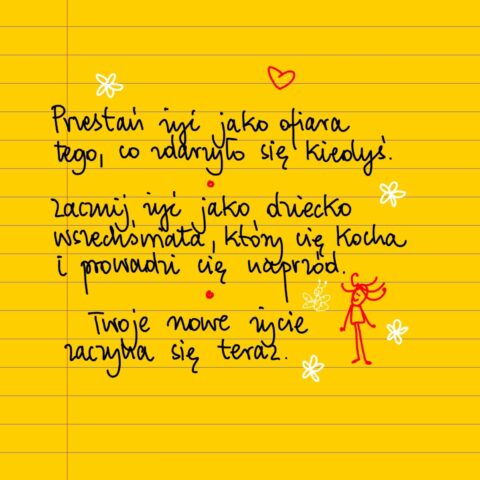 Przestań żyć jako ofiara
tego, co zdarzyło się kiedyś.
Zacznij żyć jako dziecko
wszechświata, który cię kocha
i prowadzi cię naprzód.
Twoje nowe życie
zaczyna się teraz.